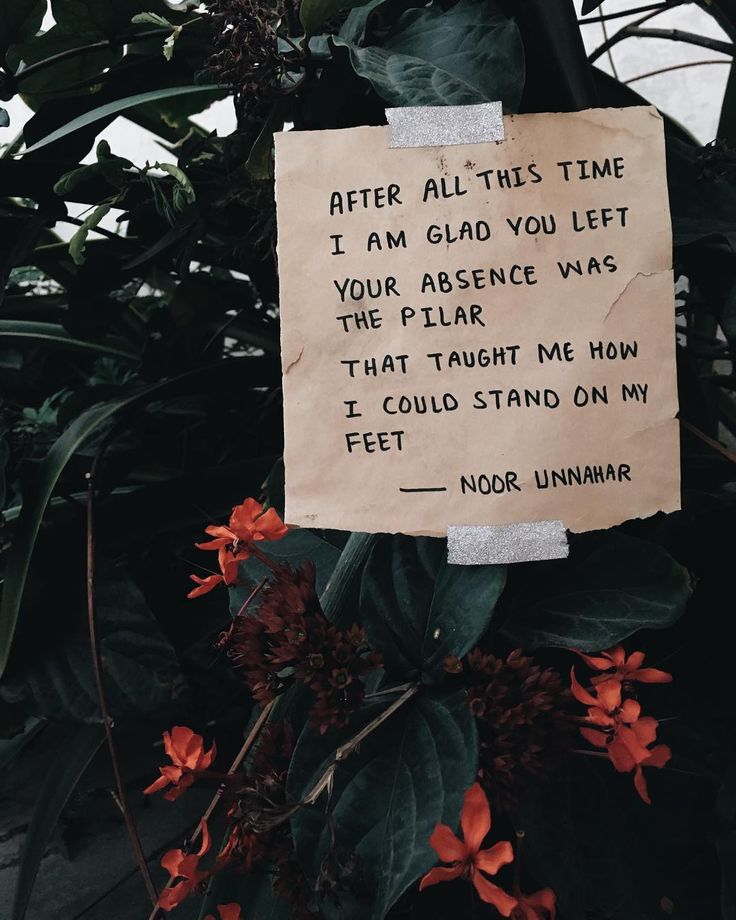 AFTER ALL THIS TIME
I AM GLAD YOU LEFT
YOUR ABSENCE WAS
THE PILAR
THAT TAUGHT ME HOW
I COULD STAND ON MY
FEET
— NOOR UNNAHAR